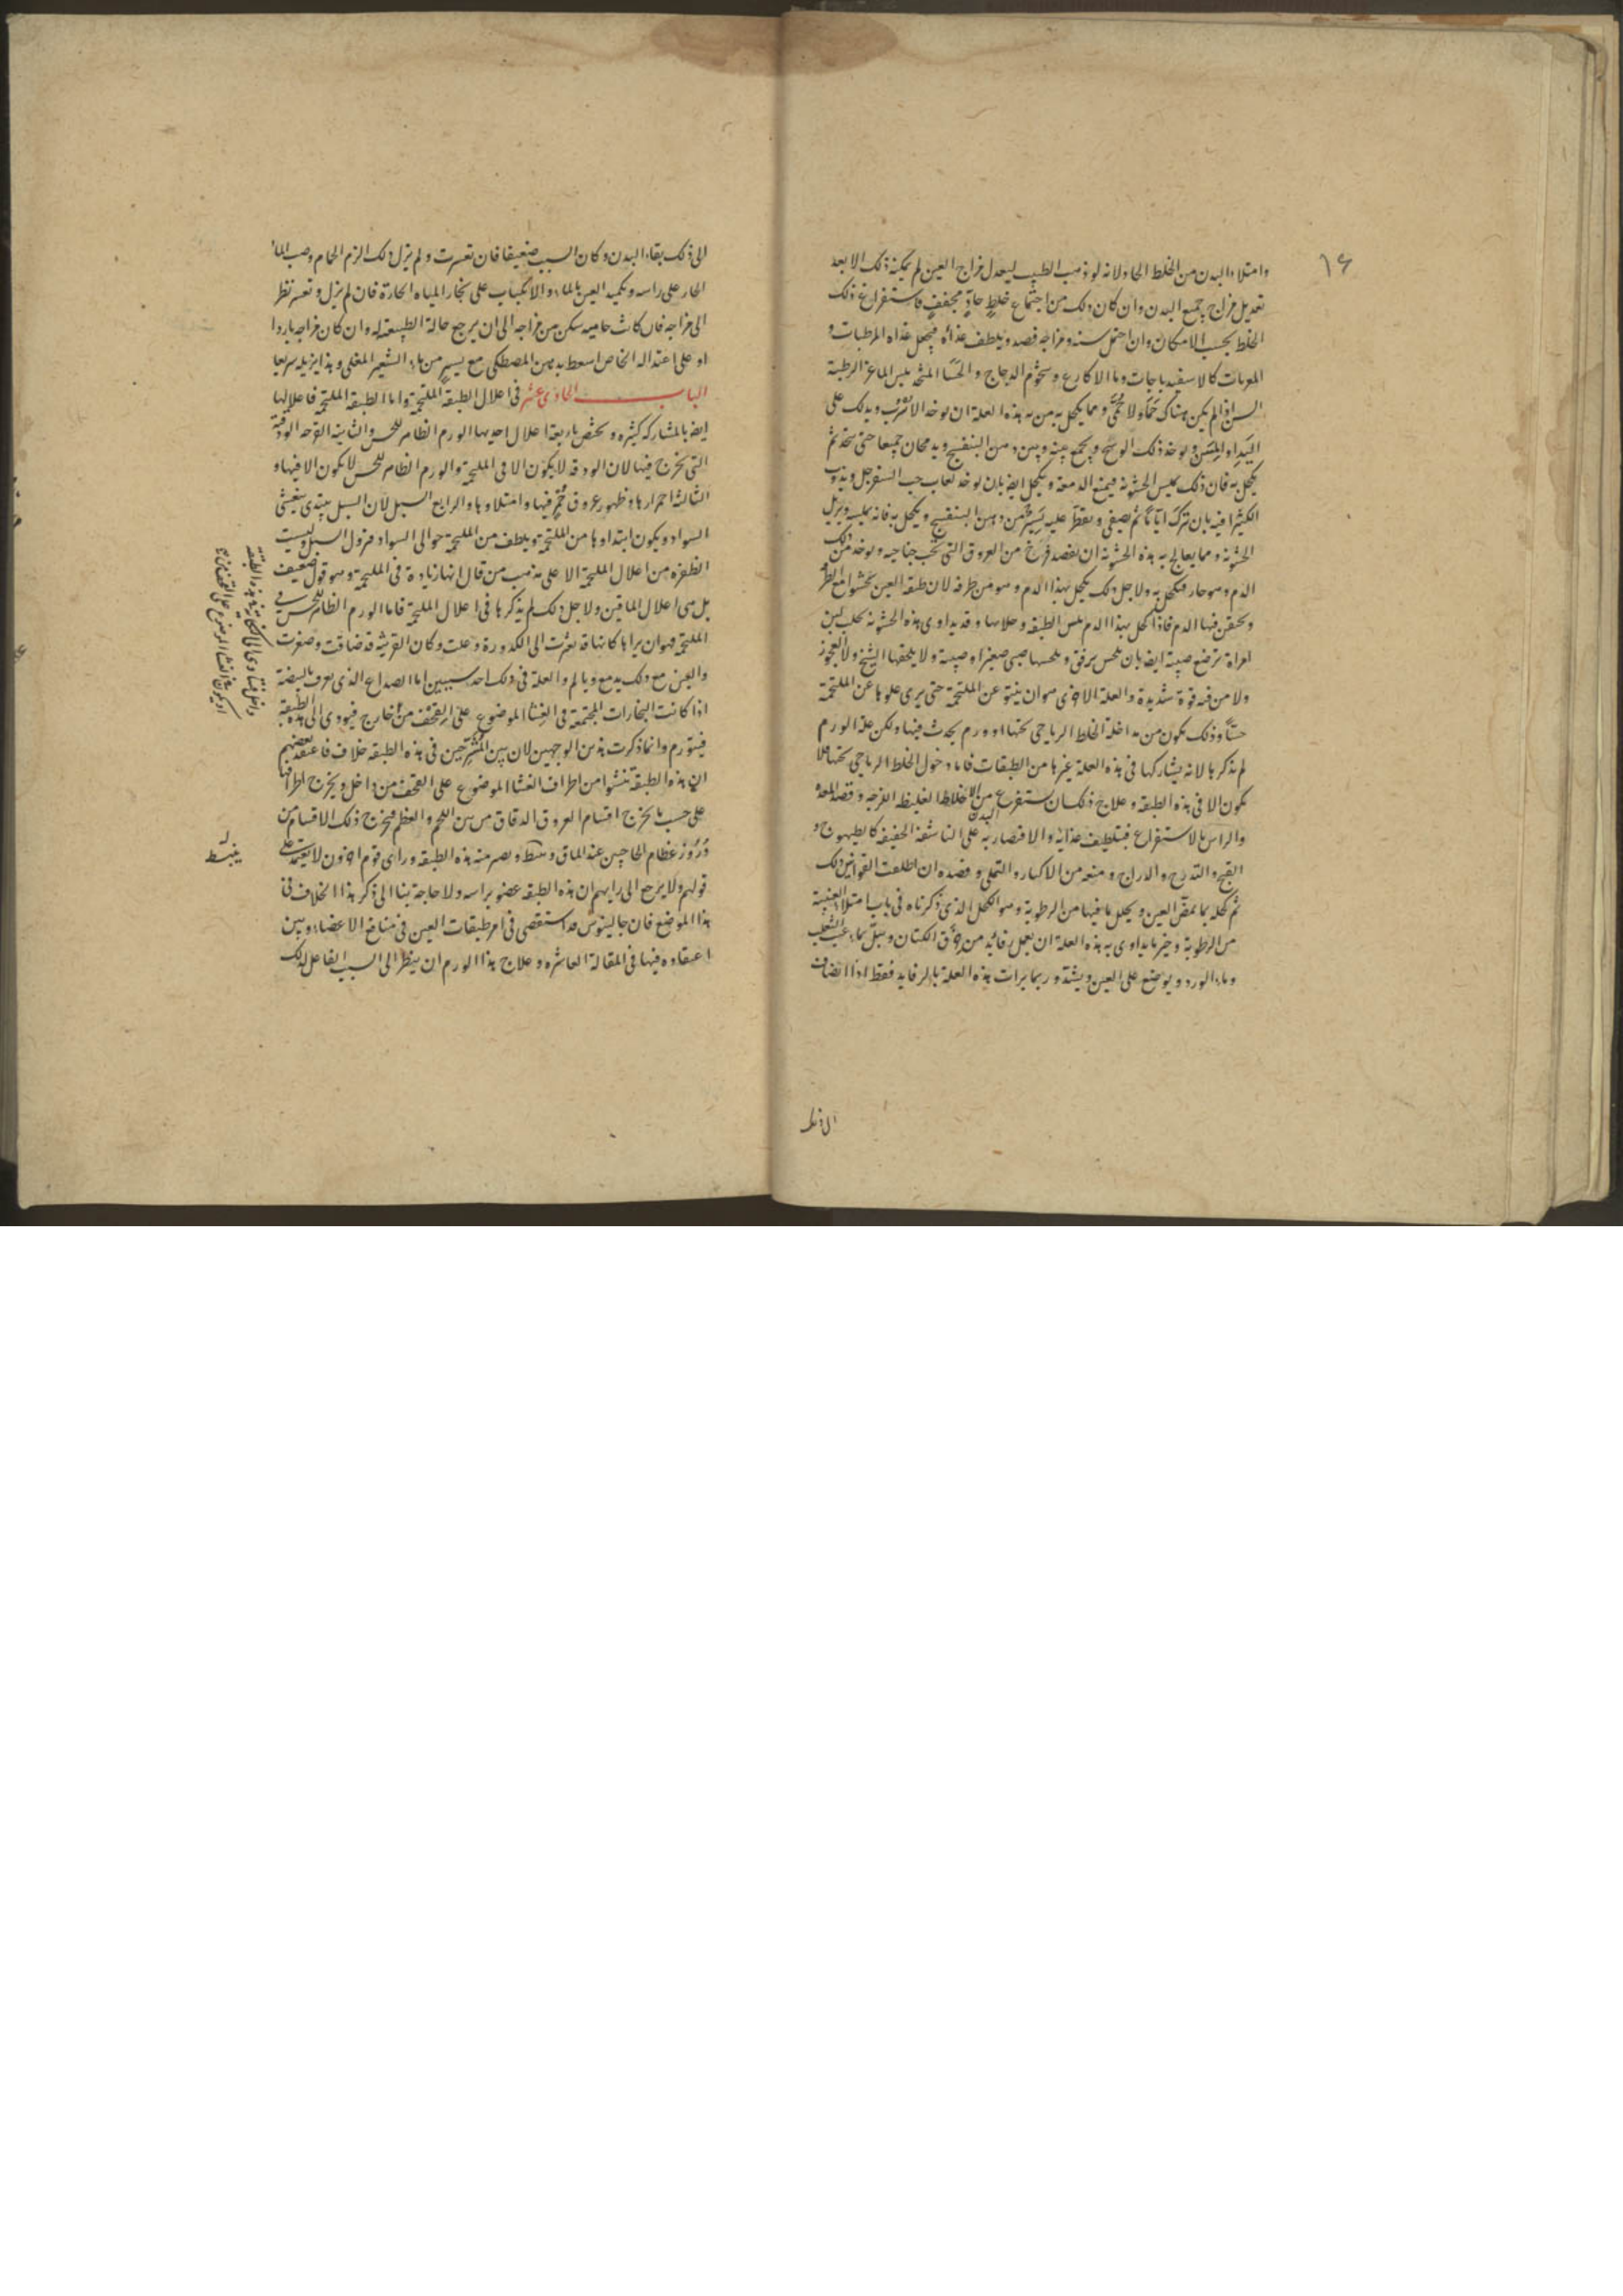 ١٦
وامتلاء البدن من الخلط الحاد ولانه لو ذهب الطبيب ليعدل مزاج العين لم يمكنه ذلك الا بعد
تعديل مزاج جميع البدن وان كان ذلك من اجتماع خلط حاد مجفف فاستفراغ ذلك
الخلط بحسب الامكان وان احتمل سنه ومزاجه فصد ويلطف غذاؤه فيجعل غذاه المرطبات و
كالاسفيدباجات وما الاكارع وشحوم الدجاج والحسا المتخذ بلبن الماعز الرطبة
السن اذا لم يكن هناك حمى ومما يكحل به من به هذه العلة ان يوخذ ويدلك على
اليد ويوخذ ذلك الوسخ ويجمع بينه وبين دهن البنفسج ويدعكان جميعا حتى يتحد ثم
يكحل به فان ذلك يلين الخشونة فيمنع الدمعة ويكحل ايضا بان يوخذ لعاب حب السفرجل ويذوب
الكثيرا فيه بان يترك اياما ثم يصفى ويقطر عليه يسير من دهن البنفسج ويكحل به فانه يلين ويزيل
الخشونة ومما يعالج به هذه الخشونة ان يفصد فرخ من العروق التي تحت جناحيه ويوخذ ذلك
الدم وهو حار فيكحل به ولاجل ذلك يكحل بهذا الدم وهو من طرفه لان طبقة العين تخشن مع الطرفة
ويحتقن فيها الدم فاذا كحل بهذا الدم ملس الطبقة وحلاها وقد يداوى هذه الخشونة بحلب لبن
امراة ترضع صبية ايضا بان تلحس برفق ويلحسها صبي صغير او صبية ولا يلحقها الشيخ ولا العجوز
ولا من فيه قوة شديدة والعلة الاخرى هو ان ينتو عن الملتحمة حتى يرى علوها عن الملتحمة
حسا وذلك يكون من مداخلة الخلط الرياحي تحتها او ورم يحدث فيها ولكن علة الورم
لم نذكرها لانه يشاركها في هذه العلة غيرها من الطبقات فاما دخول الخلط الرياحي تحتها فلا
يكون الا في هذه الطبقة وعلاج ذلك ان يستفرغ البدن من الاخلاط الغليظة اللزجة وقصد المعدة
والراس بالاستفراغ فبتلطيف غذايه والاقتصار به على الناشفة الخفيفة كالطيهوج و
القبج والتدرج والدراج ومنعه من الاكثار والتملي وفصده ان اطلعت القوانين ذلك
ثم كحله بما يمض العين ويحلل ما فيها من الرطوبة وهو الكحل الذي ذكرناه في باب امتلاء العنبية
من الرطوبة وخير ما يداوى به هذه العلة ان يعمل رفايد من خرق الكتان وتبل بماء عنب الثعلب
وماء الورد ويوضع على العين ويشد وربما برات هذه العلة بالرفايد فقط اذا انضاف
الى ذلك
الى ذلك بقاء البدن وكان السبب ضعيفا فان تعسرت ولم يزل ذلك الزم الحمام وصب الماء
الحار على راسه وتكميد العين بالماء والانكباب على بخار المياه الحارة فان لم يزل وتعسر نظر
الى مزاجه فان كانت حامية سكن من مزاجه الى ان يرجع حالة الطبيعة له وان كان مزاجه باردا
او على اعتداله الخاص اسعط بدهن المصطكى مع يسير من ماء الشعير المغلى وهذا يزيله سريعا
الباب الحادي عشر في اعلال الطبقة الملتحمة واما الطبقة الملتحمة فاعلالها
ايضا بالمشاركة كثيرة ويختص باربعة اعلال احديها الورم الظاهر للحس والثانية القرحة الودقة
التي تخرج فيها لان الودقة لا يكون الا في الملتحمة والورم الظاهر للحس لا يكون الا فيها و
الثالثة احمرارها وظهور عروق حمر فيها وامتلاوها والرابع السبل لان السبل يبتدي يغشى
السواد ويكون ابتداوها من الملتحمة ويلطف من الملتحمة حوالى السواد فنزول السبل وليست
الظفرة من اعلال الملتحمة الا على مذهب من قال انها زيادة في الملتحمة وهو قول ضعيف
بل هي اعلال الماقين ولاجل ذلك لم نذكرها في اعلال الملتحمة فاما الورم الظاهر للحس في
الملتحمة فهو ان يراها كانها قد تغيرت الى الكدورة وعلت وكان القرنية قد ضاقت وصغرت
والعين مع ذلك يدمع ويالم والعلة في ذلك احد سببين اما الصداع الذي يعرف بالبيضة
اذا كانت البخارات المجتمعة في الغشا الموضوع على القحف من خارج فيودي الى هذه الطبقة
فيتورم وانما ذكرت هذين الوجهين لان بين المشرحين في هذه الطبقة خلاف فاعتقد بعضهم
ان هذه الطبقة تنشوا من اطراف الغشا الموضوع على القحف من داخل ويخرج اطرافها
على حسب ما يخرج اقسام العروق الدقاق من بين اللحم والعظم فيخرج ذلك الاقسام من
دروز عظام الحاجبين عند الماق وينبسط ويصير منه هذه الطبقة وراى قوم اخرون لا يعتمد على
قولهم ولا يرجع الى رايهم ان هذه الطبقة عضو براسه ولا حاجة بنا الى ذكر هذا الخلاف في
هذا الموضع فان جالينوس قد استقصى في امر طبقات العين في منافع الاعضاء وبين
اعتقاده فيها في المقالة العاشرة وعلاج هذا الورم ان ينظر الى السبب الفاعل لذلك
او يكون في الغشا الموضوع على القحف من
داخل فيتادى الى هذه الطبقة
ينبسط